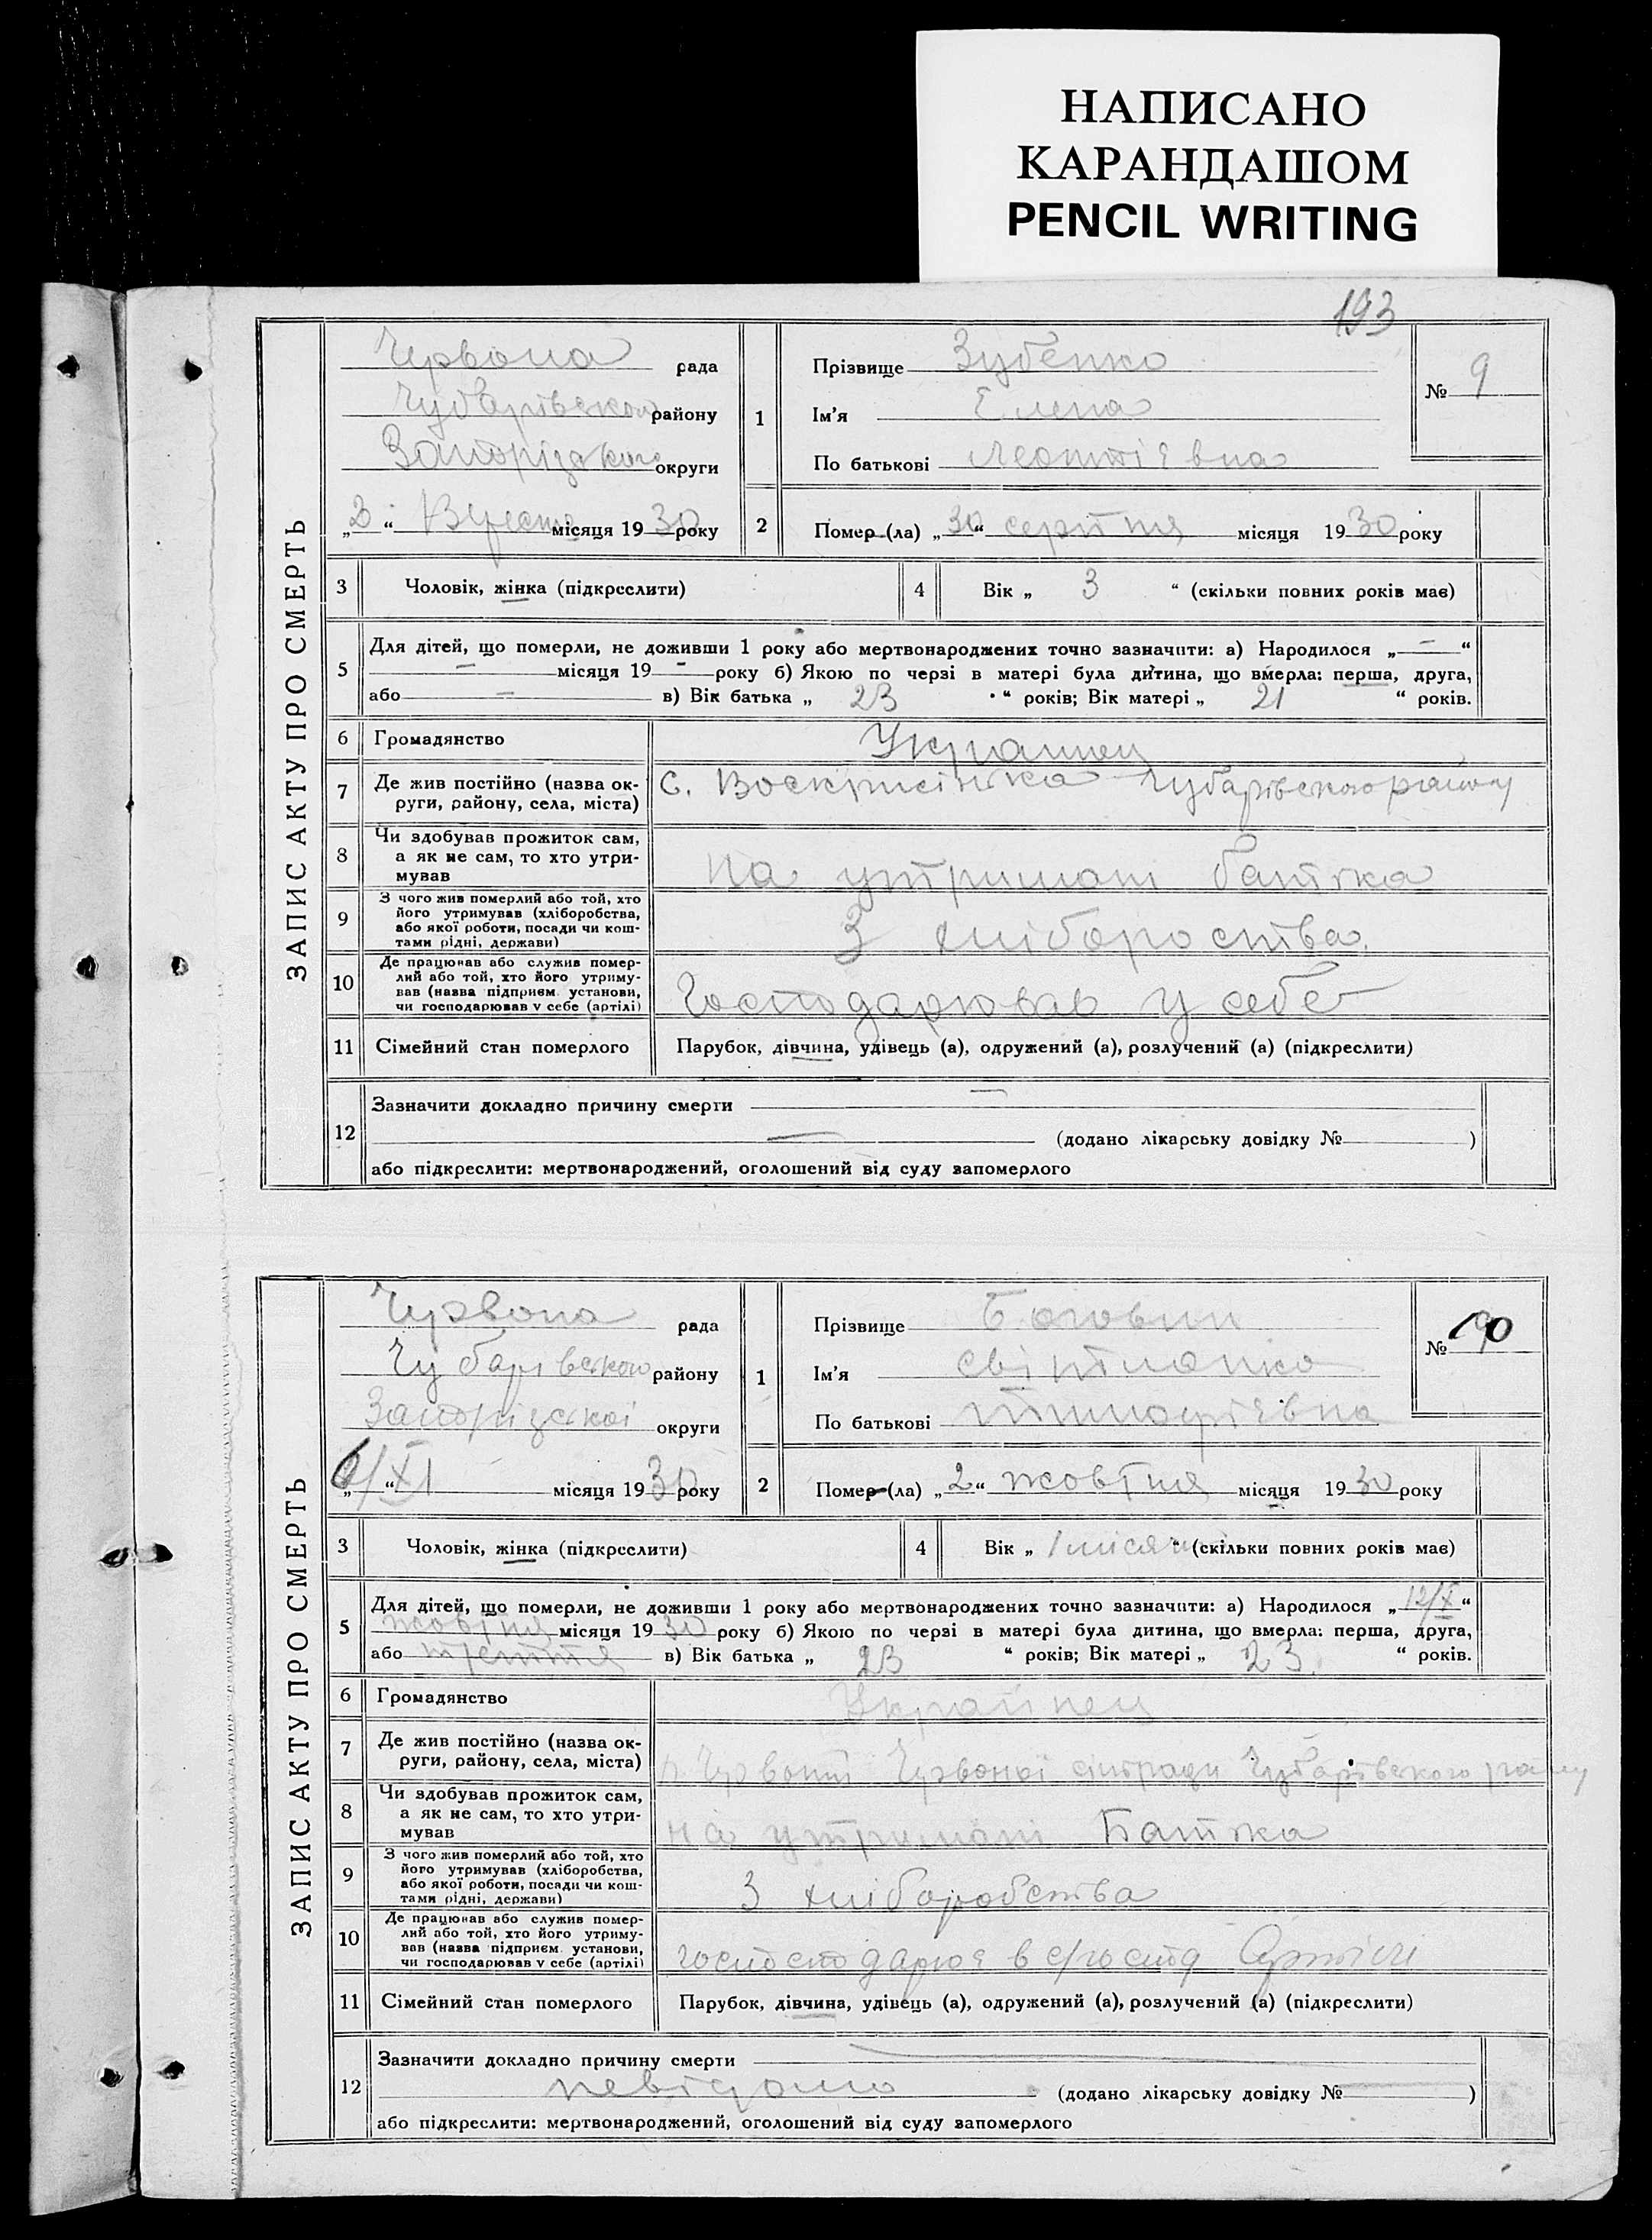 НАПИСАНО
КАРАНДАШОМ
PENCIL WRITING
193
ЗАПИС АКТУ ПРО СМЕРТЬ
Червона рада
Чубарівського району
Запорізького округи
„3“ Вересня місяця 1930 року
1
Прізвище Зубенко
Ім'я Елена
По батькові Леонтієвна
№ 9
2
Помер (ла) „30“ серпня місяця 1930 року
3
Чоловік, жінка (підкреслити)
4
Вік „ 3 “ (скільки повних років має)
5
Для дітей, що померли, не доживши 1 року або мертвонароджених точно зазначити: а) Народилося „ — “
— місяця 19 - року б) Якою по черзі в матері була дитина, що вмерла: перша, друга,
або — в) Вік батька „ 23 “ років; Вік матері „ 21 “ років.
6
Громадянство
Украинец
7
Де жив постійно (назва ок-
руги, району, села, міста)
С. Воскрисінька Чубарівського району
8
Чи здобував прожиток сам,
а як не сам, то хто утри-
мував
на утримані батька
9
З чого жив померлий або той, хто
його утримував (хліборобства,
або якої роботи, посади чи кош-
тами рідні, держави)
З хлібороства
10
Де працював або служив помер-
лий або той, хто його утриму-
вав (назва підприєм. установи,
чи господарював у себе (артілі)
Господарював у себе
11
Сімейний стан померлого
Парубок, дівчина, удівець (а), одружений (а), розлучений (а) (підкреслити)
12
Зазначити докладно причину смерти —
— (додано лікарську довідку № )
або підкреслити: мертвонароджений, оголошений від суду запомерлого
ЗАПИС АКТУ ПРО СМЕРТЬ
Червона рада
Чубарівського району
Запорізської округи
6/XI місяця 1930 року
1
Прізвище
Ім'я Світланка
По батькові Тимофієвна
№ 10
2
Помер (ла) „2“ жовтня місяця 1930 року
3
Чоловік, жінка (підкреслити)
4
Вік „ 1 місяц “ (скільки повних років має)
5
Для дітей, що померли, не доживши 1 року або мертвонароджених точно зазначити: а) Народилося „12/X“
жовтня місяця 1930 року б) Якою по черзі в матері була дитина, що вмерла: перша, друга,
або третя в) Вік батька „ 23 “ років; Вік матері „ 23 “ років.
6
Громадянство
Украінец
7
Де жив постійно (назва ок-
руги, району, села, міста)
Червоної сільради Чубарівського району
8
Чи здобував прожиток сам,
а як не сам, то хто утри-
мував
на утримані Батька
9
З чого жив померлий або той, хто
його утримував (хліборобства,
або якої роботи, посади чи кош-
тами рідні, держави)
З хліборобства
10
Де працював або служив помер-
лий або той, хто його утриму-
вав (назва підприєм. установи,
чи господарював у себе (артілі)
в с/госпд Артілі
11
Сімейний стан померлого
Парубок, дівчина, удівець (а), одружений (а), розлучений (а) (підкреслити)
12
Зазначити докладно причину смерти
невідомо (додано лікарську довідку № )
або підкреслити: мертвонароджений, оголошений від суду запомерлого